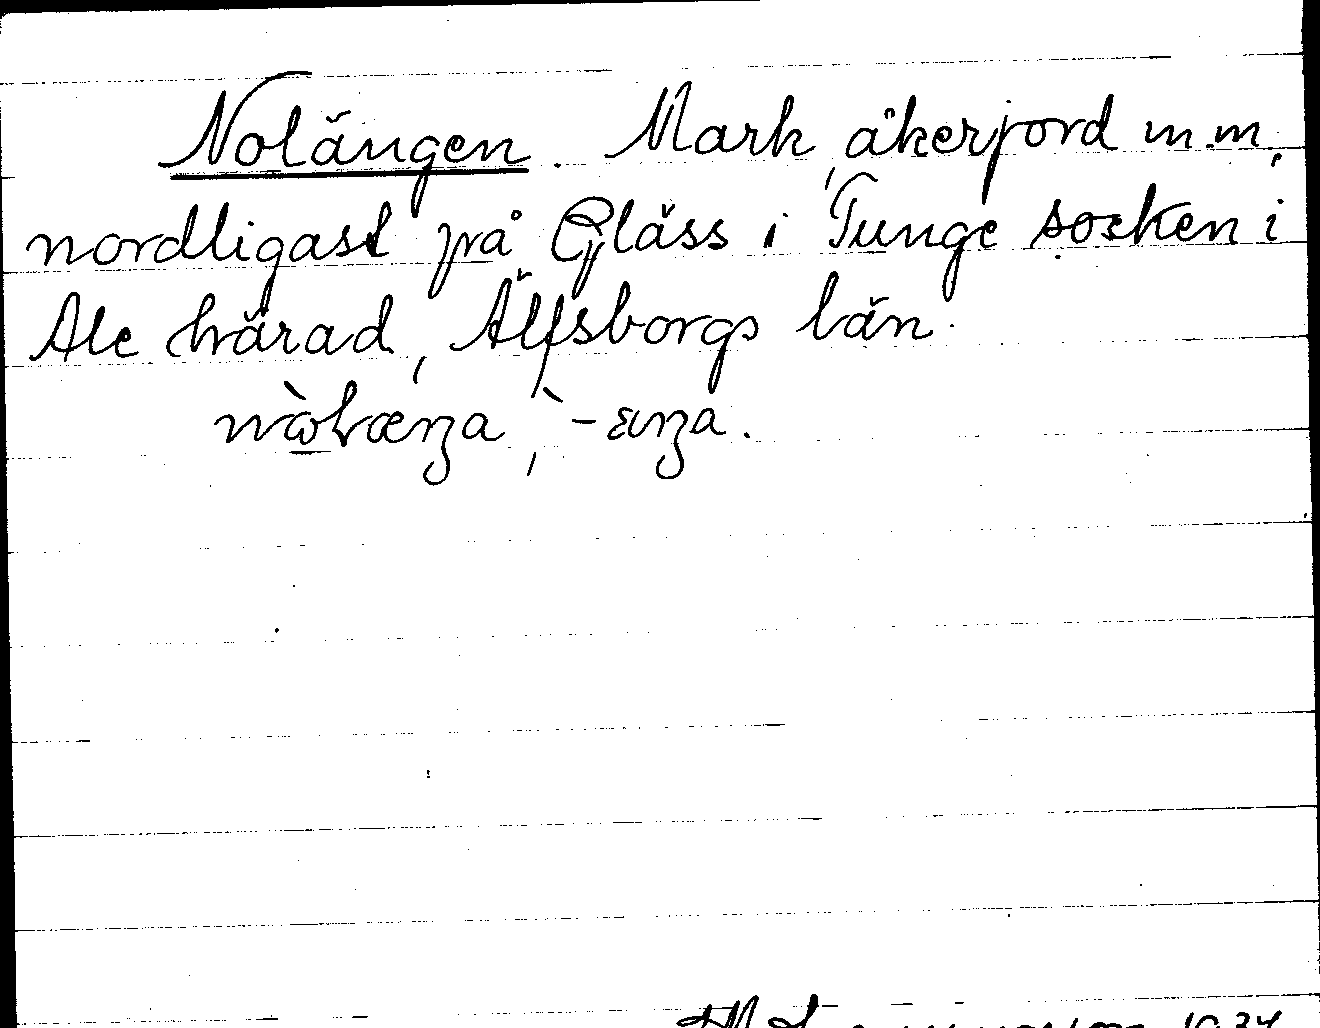 Nolängen. Mark, åkerjord m.m.
nordligast på Gläss i Tunge socken i
Ale härad, Älfsborgs län.
1934